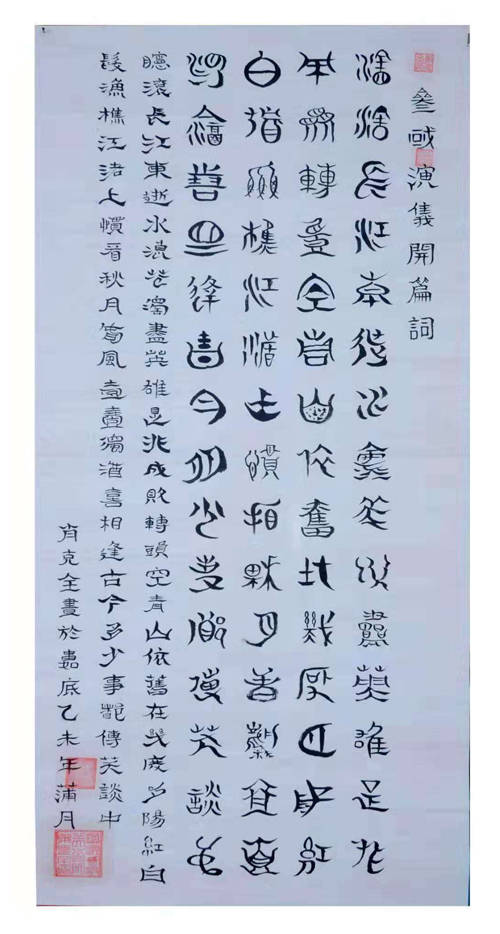 叄國演儀開篇詞
滾滾長江東逝水浪花淘盡英雄是非
成敗轉頭空青山依舊在幾度夕陽紅
白髮漁樵江渚上慣看秋月春風壹壺
濁酒喜相逢古今多少事都付笑談中
滾滾長江東逝水浪花濁盡英雄是非成敗轉頭空青山依舊在幾度夕陽紅白
髮漁樵江渚上慣看秋月春風壹壺濁酒喜相逢古今多少事都傳笑談中
肖克全書於嘉底乙未年蒲月